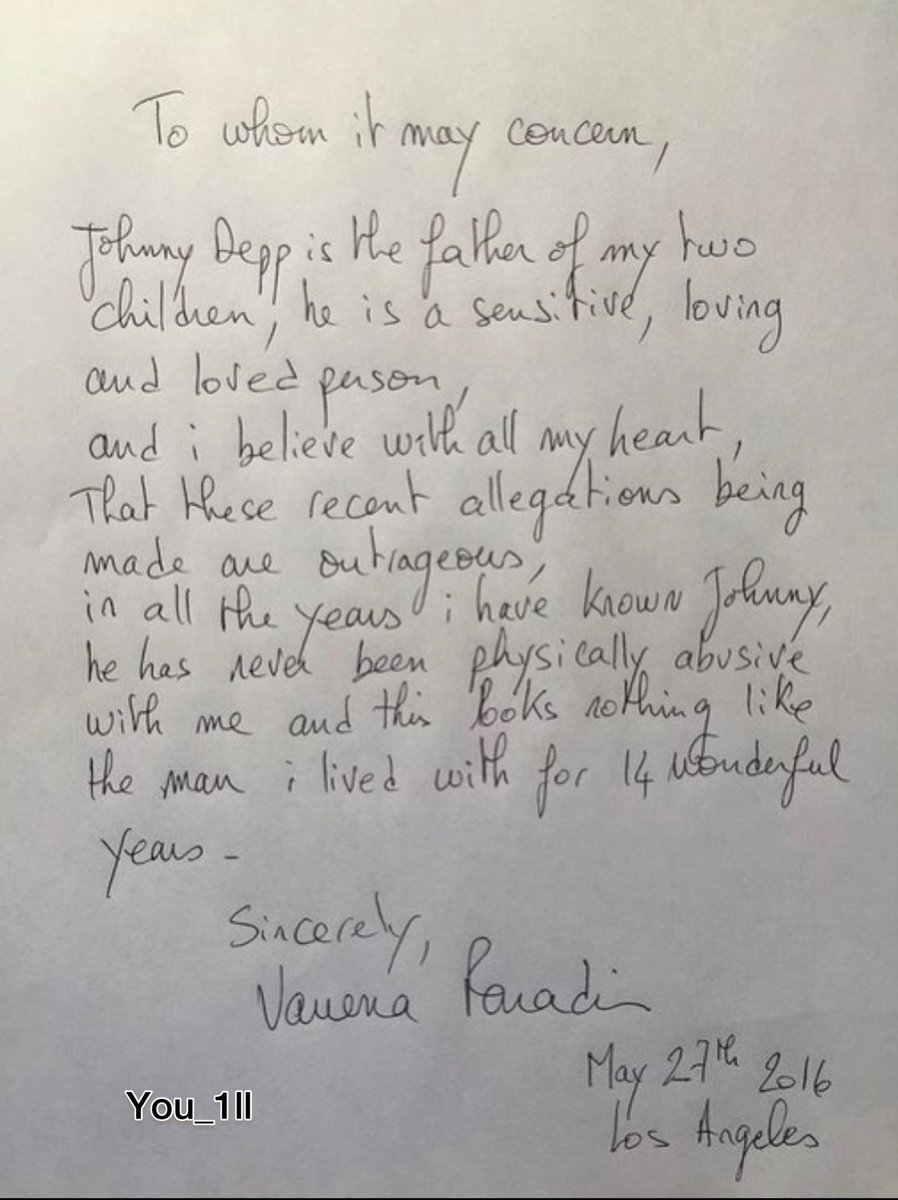 To whom it may concern,
Johnny Depp is the father of my two
children, he is a sensitive, loving
and loved person,
and i believe with all my heart,
That these recent allegations being
made are outrageous,
in all the years i have known Johnny,
he has never been physically abusive
with me and this looks nothing like
the man i lived with for 14 wonderful
years -
Sincerely,
Vanessa Paradis
May 27th 2016
Los Angeles
You_1ll